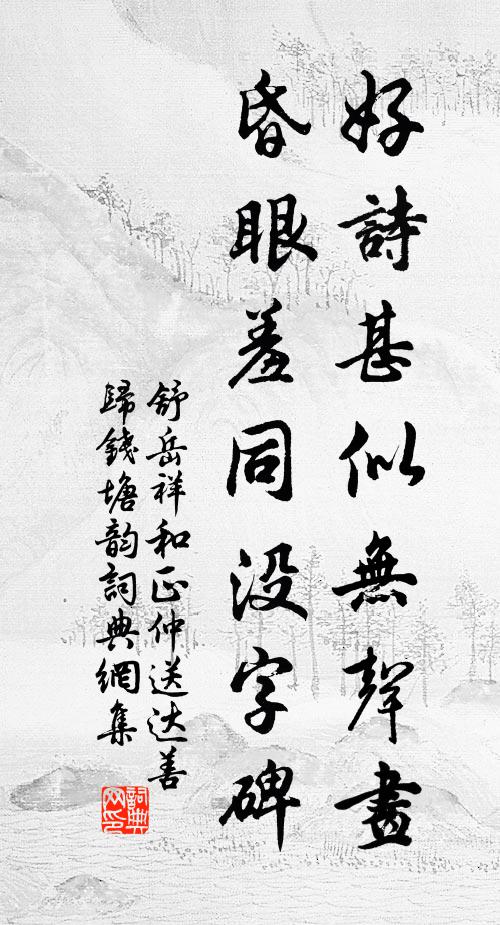 好詩甚似無聲畫
昏眼羞同没字碑
舒岳祥和正仲送达善
歸錢塘韵詞典網集
詞典网印